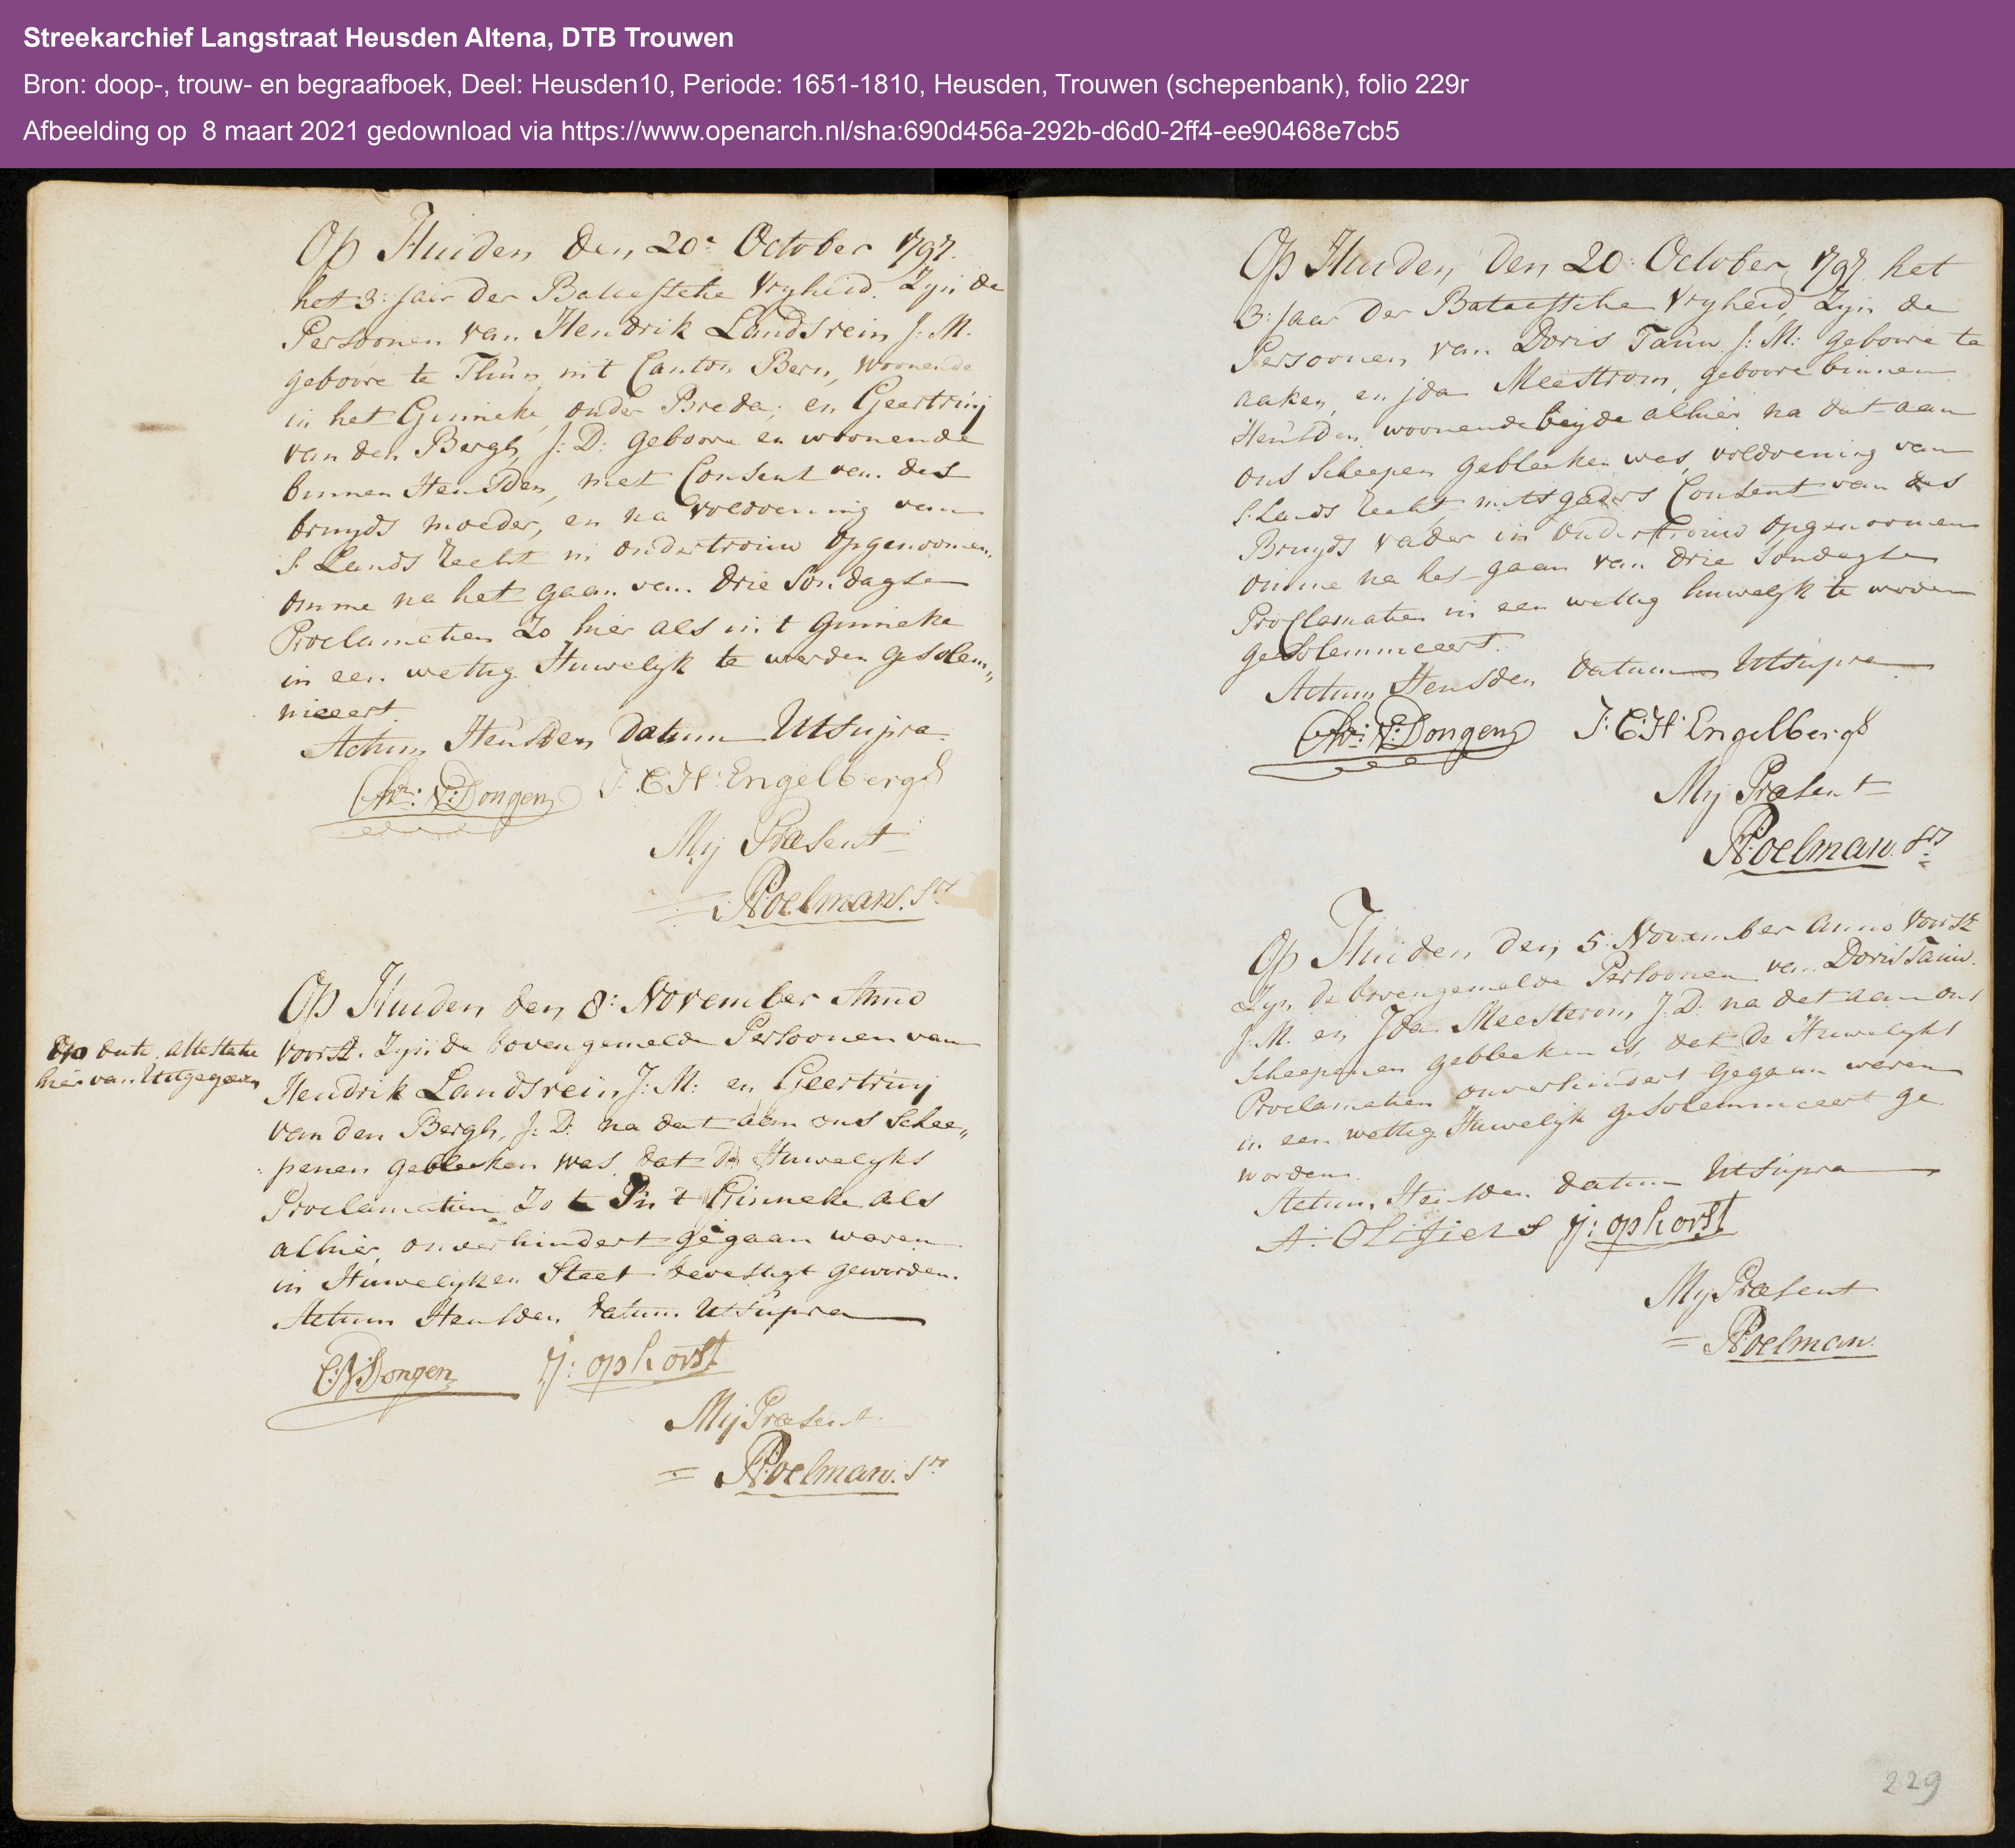 Streekarchief Langstraat Heusden Altena, DTB Trouwen
Bron: doop-, trouw- en begraafboek, Deel: Heusden10, Periode: 1651-1810, Heusden, Trouwen (schepenbank), folio 229r
Afbeelding op 8 maart 2021 gedownload via https://www.openarch.nl/sha:690d456a-292b-d6d0-2ff4-ee90468e7cb5
Op Huiden den 20e October 1797.
het 3: Jaar der Bataefsche Vryheid. Zyn de
Persoonen van Hendrik Landsrein J: M.
geboore te Thun, int Canton Bern, woonende
in het Ginneke, onder Breda; en Geertruij
van den Bergh, J: D: geboore en woonende
binnen Heusden, met Consent van des
bruyds moeder, en na voldoening van
S. Lands recht in ondertrouw opgenoomen,,
omme na het gaan van drie Sondagse
Proclamatien Zo hier als in t Ginneke
in een wettig Huwelyk te werden gesolem,,
niceert.
Actum Heusden datum Utsupra
Chr: V: Dongen J: C: H: Engelbergs
Mij Præsent
P: Roelman. Srs
Op Huiden den 8: November Anno
Op dato attestatie
hier van Uitgegeven
voorst. Zyn de bovengemelde Persoonen van
Hendrik Landsrein J: M: en Geertruij
van den Bergh, J: D: na dat aan ons Schee,,
penen gebleeken was, dat de Huwelyks
Proclamatien Zo in t Ginneke als
alhier onverhindert gegaan waren
in Huwelyken Staet bevestigt geworden.
Actum Heusden datum Utsupra
C: V: Dongen J: ophorst
Mij Præsent
P: Roelman. Srs
Op Huiden, den 20: October, 1797 het
3: Jaar der Bataefsche Vryheid, Zyn de
Persoonen van Doris Tauw J: M: geboore te
aaken, en jda Meestrom, geboore binnen
Heusden, woonende beijde alhier na dat aan
ons Scheepen gebleeken was, voldoening van
S. Lands recht mitsgaders Consent van des
Bruyds vader in Ondertrouw opgenoomen
omme na het gaan van drie Sondagse
Proclamatien in een wettig huwelyk te worden
gesolemniceert.
Actum Heusden datum Utsupra
Chr: V: Dongen J: C: H: Engelbergs
Mij Præsent
P: Roelman. Srs
Op Huiden den 5: November Anno voorst.
Zyn de bovengemelde Persoonen van Doris Tauw.
J: M. en Jda Meesterom, J: D: na dat aan ons
Scheepenen gebleeken is, dat de Huwelyks
Proclamatien onverhindert gegaan waren
in een wettig Huwelyk gesolemniceert ge
worden.
Actum Heusden datum Utsupra
A: Olifiers J: ophorst
Mij Præsent
P: Roelman.
229